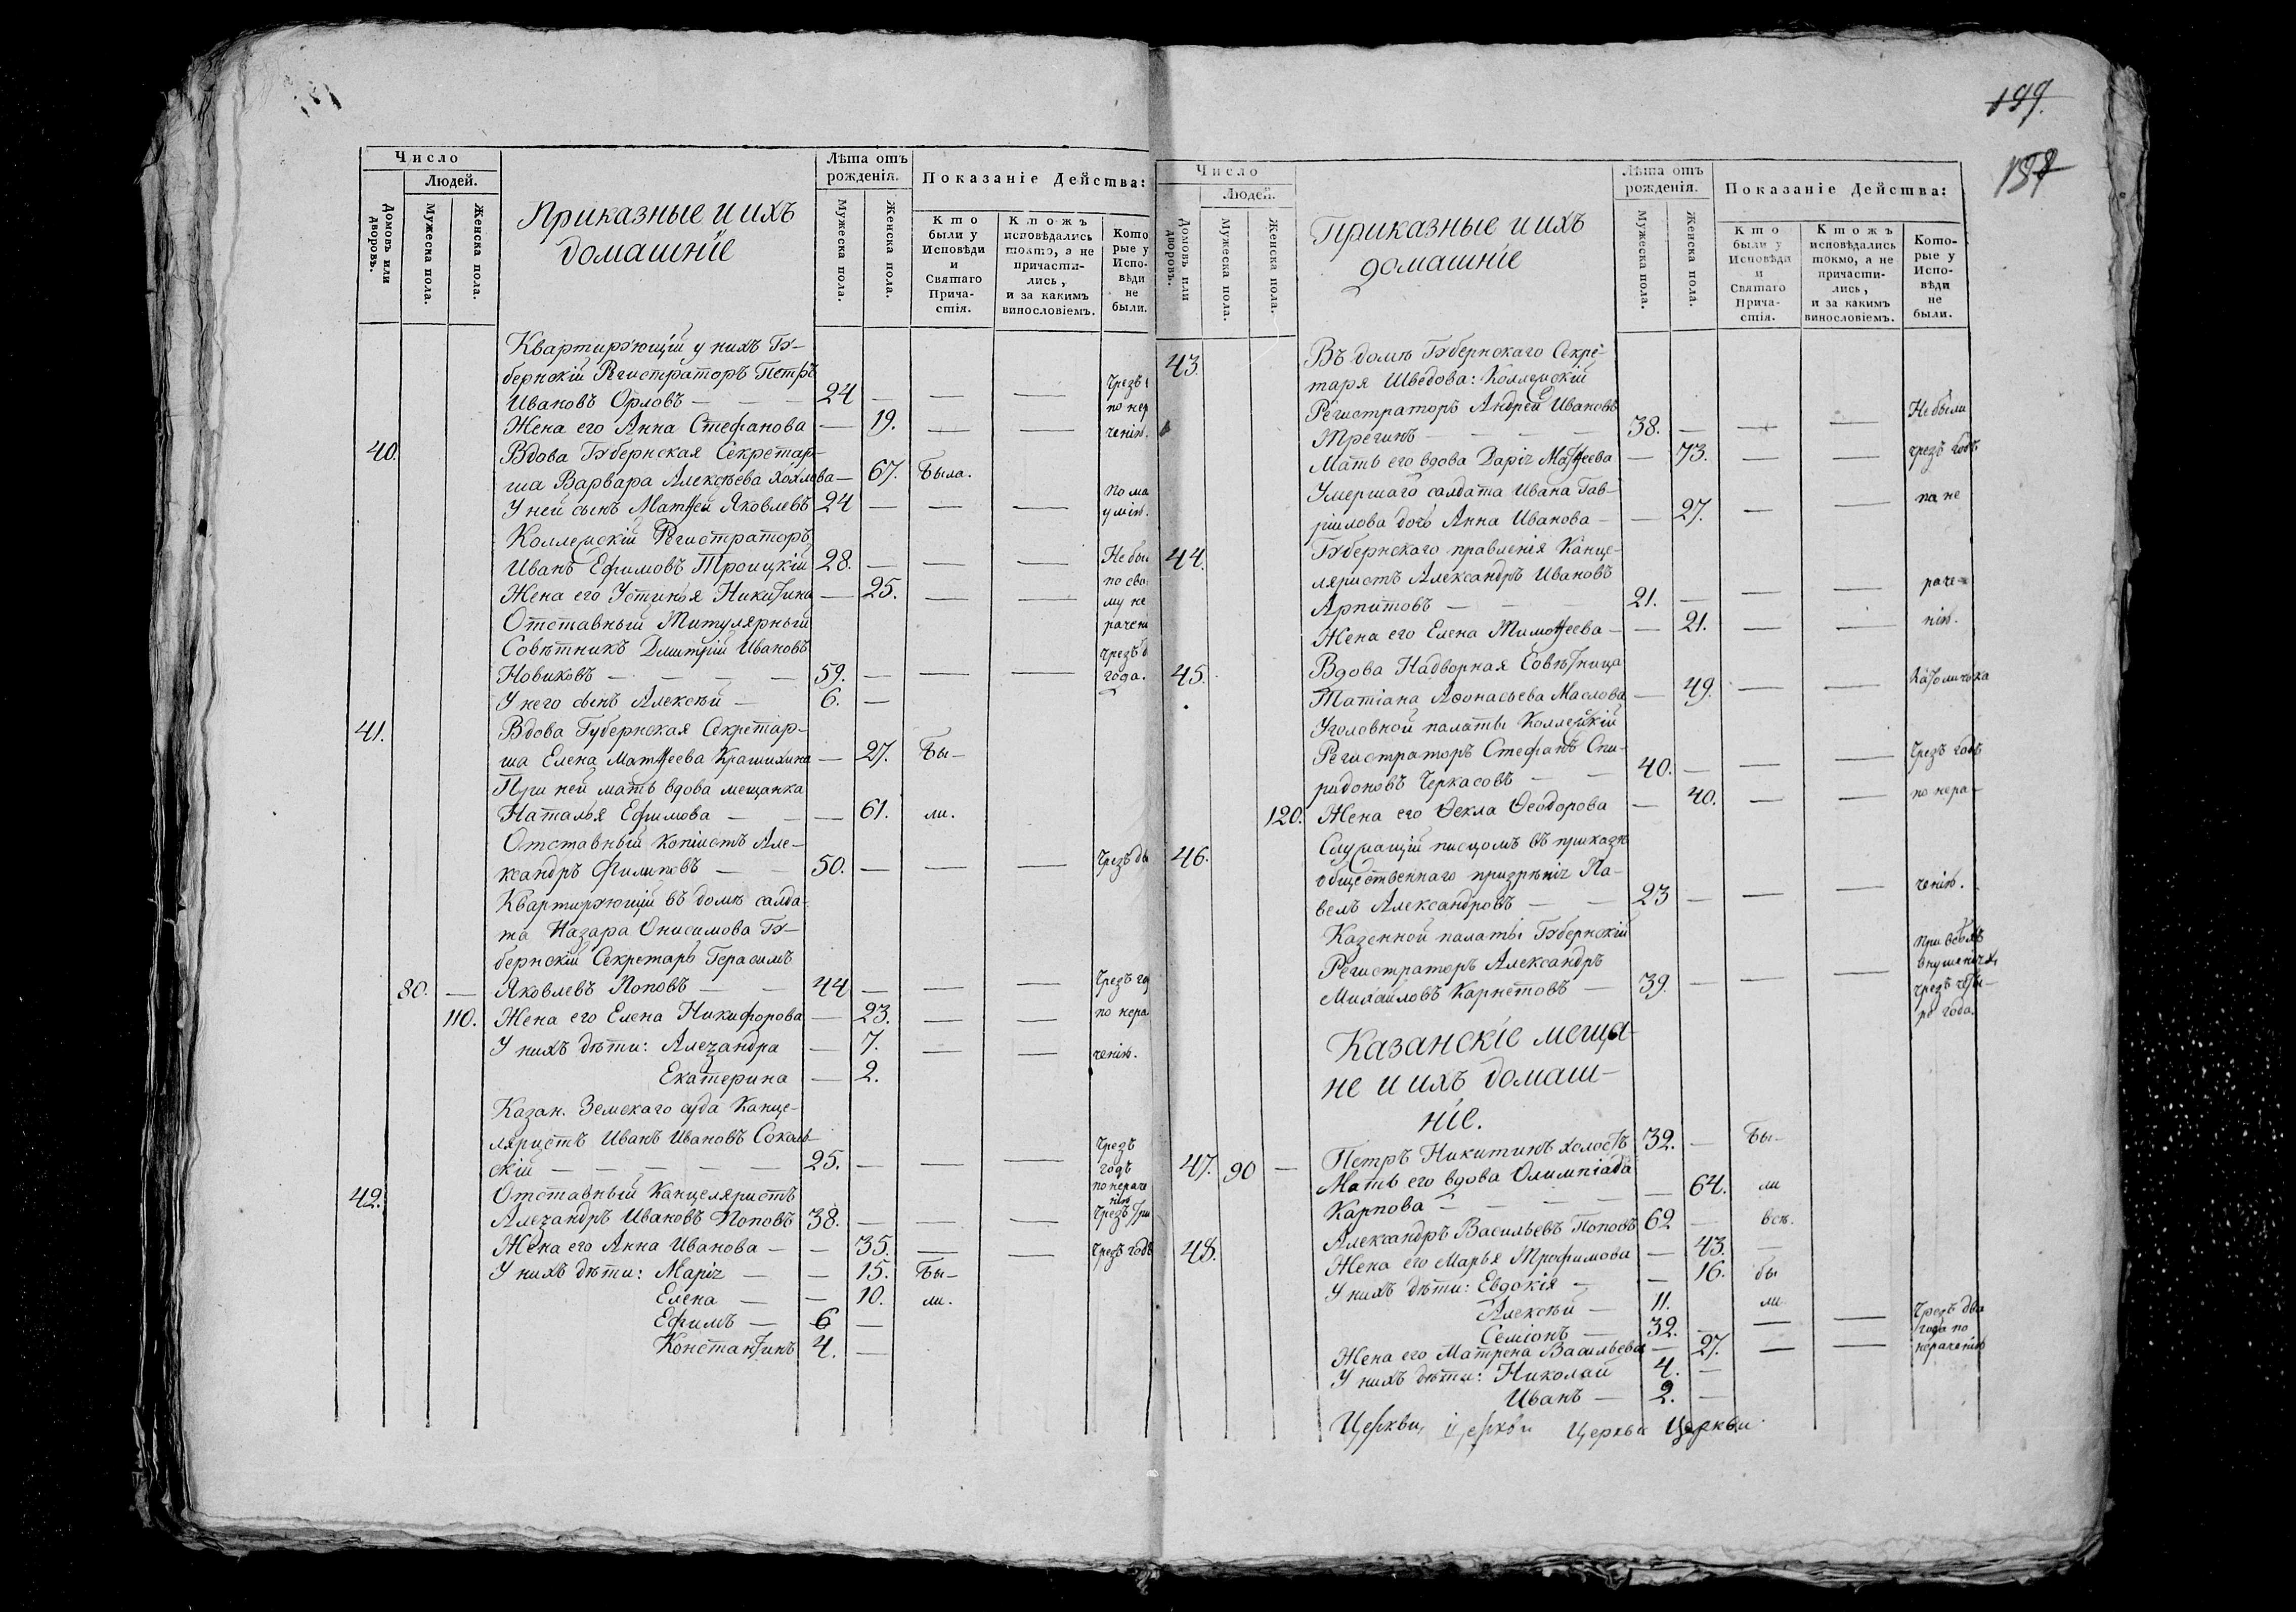 Число
Людей.
Домовъ или дворовъ.
Мужеска пола.
Женска пола.
Приказные и ихъ
домашніе
Лѣта отъ
рожденія.
Мужеска пола.
Женска пола.
Показаніе Действа:
Кто
были у
Исповѣди
и
Святаго
Прича-
стія.
Ктожъ
исповѣдались
токмо, а не
причасти-
лись,
и за какимъ
винословіемъ.
Кото
рые у
Испо-
вѣди
не
были.
Квартирующій у нихъ Гу-
бернскій Регистраторъ Петръ
Ивановъ Орловъ — — — 24 — — — Чрезъ
по нер
Жена его Анна Стефанова — 19. — — ченію.
40. Вдова Губернская Секретар-
ша Варвара Алексѣева Хохлова — 67. Была.
У ней сынъ Матѳей Яковлевъ 24 — — — По ма
умію.
Коллежскій Регистраторъ
Иванъ Ефимовъ Троицкій 28. — — — Не бы
по сво
Жена его Устинья Никитина — 25. — — му не
Отставный Титулярный рачен
Совѣтникъ Дмитрій Ивановъ
Чрезъ д
Новиковъ — — — — 59. — — — года.
У него сынъ Алексѣй — 6. —
41. Вдова Губернская Секретар-
ша Елена Матѳеева Крашихина — 27. Бы-
При ней мать вдова мещанка
Наталья Ефимова — — — 61. ли.
Отставный копіистъ Але-
ксандръ Филиповъ — — 50. — — — Чрезъ дв
Квартирующій въ домѣ салда-
та Назара Онисимова Гу-
бернскій Секретарь Герасимъ
80. — Яковлевъ Поповъ — — 44 — — — Чрезъ го
110. Жена его Елена Никифорова — 23. — — по нера
У нихъ дѣти: Алеѯандра — 7. — — ченію.
Екатерина — 2.
Казан. Земскаго суда Канце-
ляристъ Иванъ Ивановъ Соколь-
скій — — — — — 25. — — — Чрезъ
годъ
по нераче
нію
42. Отставный Канцеляристъ
Алеѯандръ Ивановъ Поповъ 38. — — — Чрезъ три
Жена его Анна Иванова — — 35. — — Чрезъ годъ
У нихъ дѣти: Марія — — 15. Бы-
Елена — — 10. ли.
Ефимъ — 6 —
Константинъ 4. —
199.
Число
Людей.
Домовъ или дворовъ.
Мужеска пола.
Женска пола.
Приказные и ихъ
домашніе
Лѣта отъ
рожденія.
Мужеска пола.
Женска пола.
Показаніе Действа:
Кто
были у
Исповѣди
и
Святаго
Прича-
стія.
Ктожъ
исповѣдались
токмо, а не
причасти-
лись,
и за какимъ
винословіемъ.
Кото-
рые у
Испо-
вѣди
не
были.
43. Въ домѣ Губернскаго Секре-
таря Шведова: Коллежскій
Регистраторъ Андрей Ивановъ Не были
Трегинъ — — — — 38. — — —
Мать его вдова Дарія Матѳеева — 73. — — чрезъ годъ
Умершаго салдата Ивана Гав-
ріилова дочь Анна Иванова — — 27. — — по не
44. Губернскаго правленія Канце-
ляристъ Александръ Ивановъ
Арпитовъ — — — 21. — — — раче-
Жена его Елена Тимоѳеева — — 21. — — нію.
45. Вдова Надворная Совѣтница
Татіана Аѳонасьева Маслова — 49. — — Католичка
Уголовной палаты Коллежскій
Регистраторъ Стефанъ Спи-
ридоновъ Черкасовъ — — 40. — — — Чрезъ годъ
120. Жена его Ѳекла Ѳеодорова — 40. — — по нера-
46. Служащій писцомъ въ приказѣ
общественнаго призрѣнія Па-
велъ Александровъ — — 23 — — — ченію.
Казенной палаты Губернскій
Регистраторъ Александръ
Михайловъ Карнетовъ — 39. — — — при всѣхъ
внушеніяхъ
чрезъ четы-
ре года.
Казанскіе меща-
не и ихъ домаш-
ніе.
47. 90 — Петръ Никитинъ холостъ 32. — Бы-
Мать его вдова Олимпіада
Карпова — — — — 64. ли
48. Александръ Васильевъ Поповъ 62 — всѣ.
Жена его Марья Трофимова — 43. —
У нихъ дѣти: Евдокія — — 16. бы
Алексѣй — 11. ли
Семіонъ — 32. — — — Чрезъ два
года по
Жена его Матрена Васильева — 27. — — нераченію
У нихъ дѣти: Николай 4. —
Иванъ — 2. —
Церкви, церкви Церкви Церкви